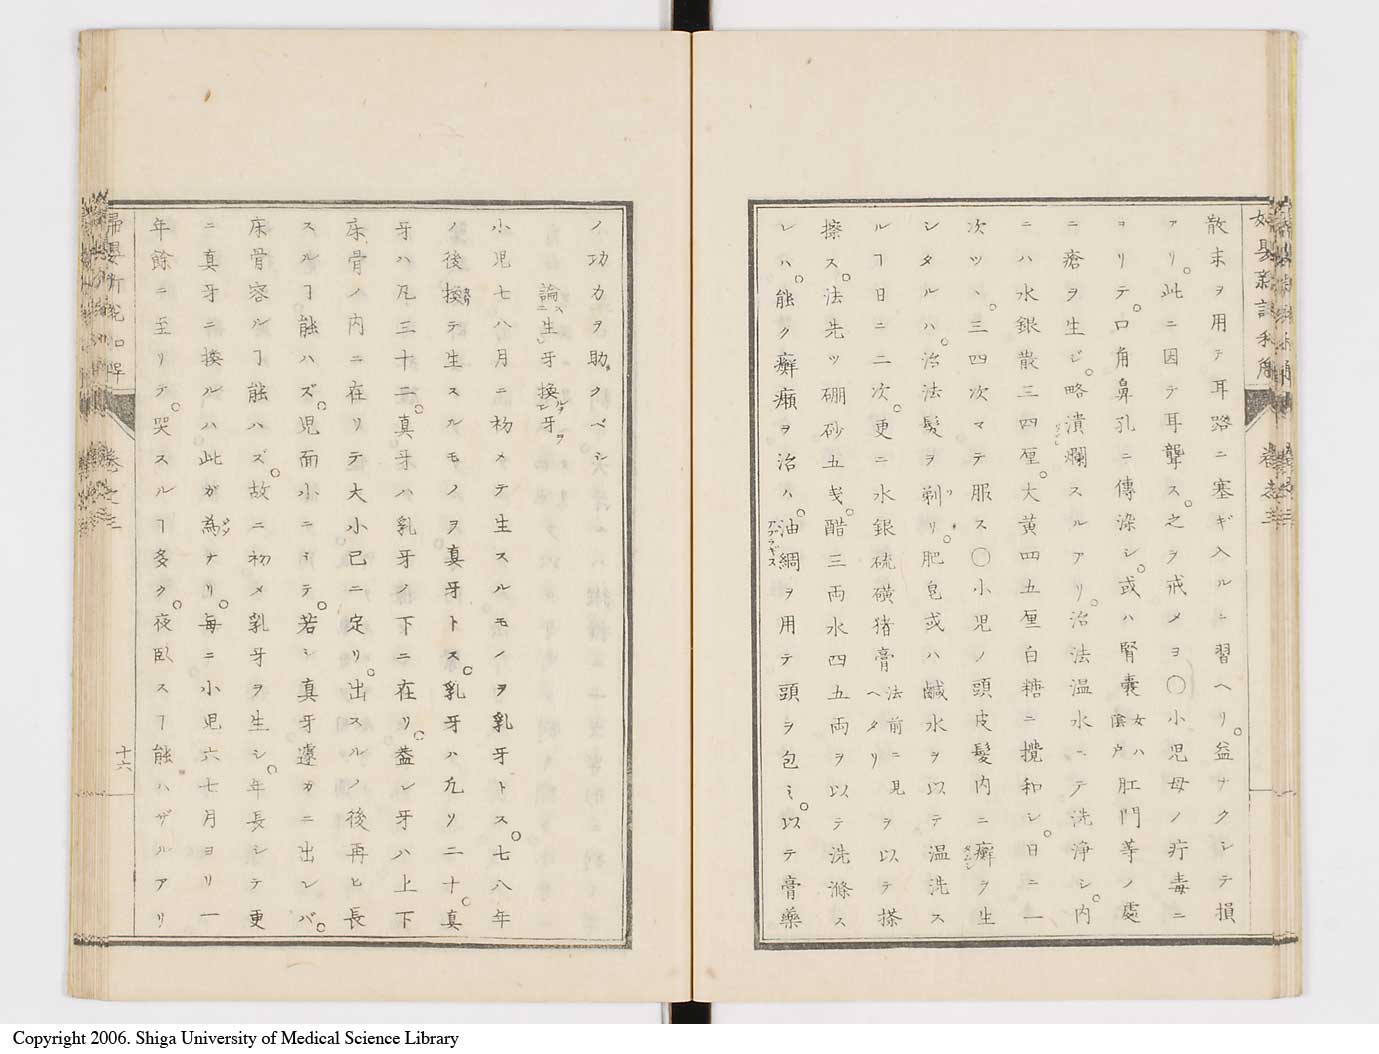 散末ヲ用テ耳路ニ塞ギ入ルニ習ヘリ。益ナクシテ損
アリ。此ニ因テ耳聾ス。之ヲ戒メヨ〇小児母ノ疔毒ニ
ヨリテ。口角鼻孔ニ傳染シ。或ハ腎嚢女ハ陰戸肛門等ノ處
ニ瘡ヲ生ジ。略潰爛スルアリ。治法温水ニテ洗浄シ。内
ニハ水銀散三四厘。大黄四五厘白糖ニ攪和シ。日ニ一
次ツヽ。三四次マテ服ス〇小児ノ頭皮髪内ニ癬ヲ生
シタルハ。治法髪ヲ剃リ。肥皂或ハ鹹水ヲ以テ温洗ス
ルヿ日ニ二次。更ニ水銀硫磺猪膏法前ニ見ヘタリヲ以テ搽
擦ス。法先ツ硼砂五戔。醋三両水四五両ヲ以テ洗滌ス
レハ。能ク癬癩ヲ治ハ。油綢ヲ用テ頭ヲ包ミ。以テ膏藥
ノ功力ヲ助クベシ
論生牙換牙
小児七八月ニ初メテ生スルモノヲ乳牙トス。七八年
ノ後換テ生スルモノヲ真牙トス。乳牙ハ凡リ二十。真
牙ハ凡三十二。真牙ハ乳牙ノ下ニ在リ。蓋シ牙ハ上下
床骨ノ内ニ在リテ大小已ニ定リ。出スルノ後再ヒ長
スルヿ能ハズ。児面小ニシテ。若シ真牙遽カニ出レバ。
床骨容ルヿ能ハズ。故ニ初メ乳牙ヲ生シ。年長シテ更
ニ真牙ニ換ルハ此ガ為ナリ。毎ニ小児六七月ヨリ一
年餘ニ至リテ。哭スルヿ多ク。夜臥スヿ能ハザルアリ
十六
Copyright 2006. Shiga University of Medical Science Library